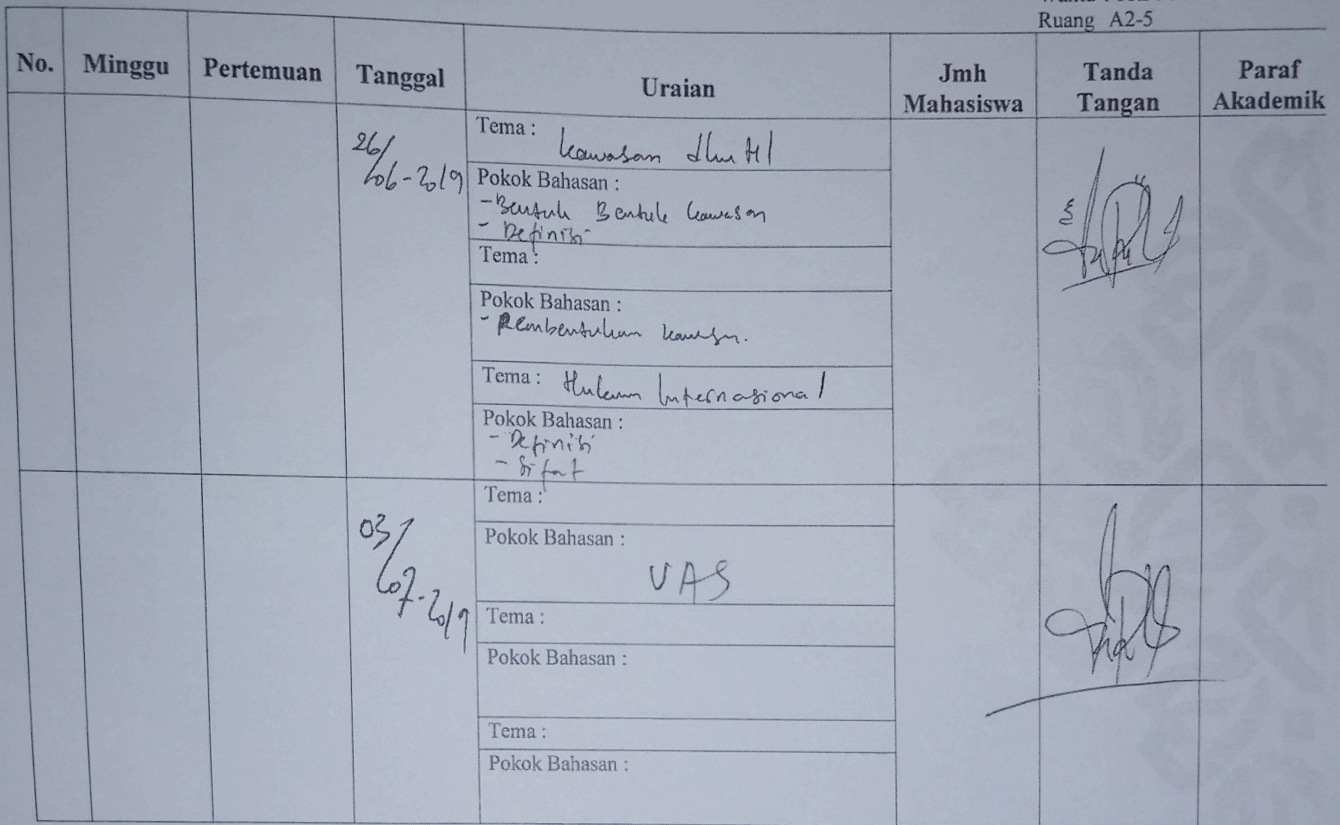 Ruang A2-5
No. Minggu Pertemuan Tanggal Uraian Jmh Mahasiswa Tanda Tangan Paraf Akademik
26/06-2019
Tema : Kawasan dlm HI
Pokok Bahasan :
- Bentuk Bentuk Kawasan
- Definisi
Tema :
Pokok Bahasan :
- Pembentukan Kawasan.
Tema : Hukum Internasional
Pokok Bahasan :
- Definisi
- Sifat
03/07-2019
Tema :
Pokok Bahasan :
UAS
Tema :
Pokok Bahasan :
Tema :
Pokok Bahasan :